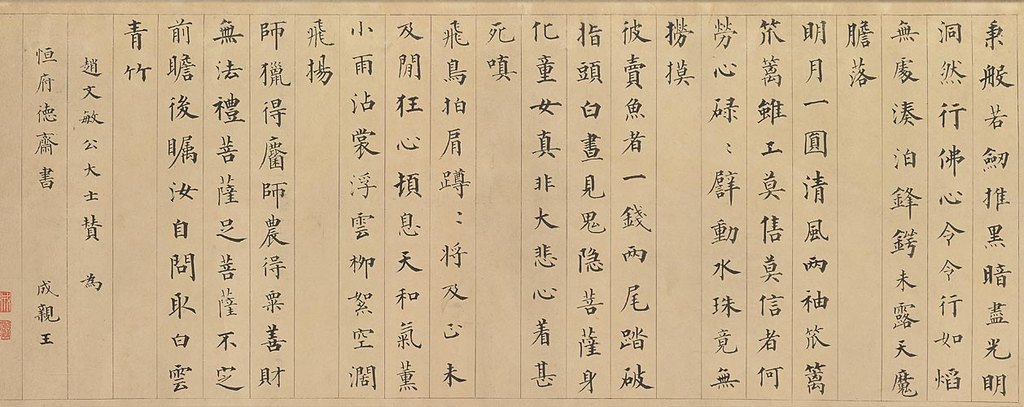 秉般若劒推黑暗盡光明
洞然行佛心令令行如熖
無處湊泊鋒鍔未露天魔
膽落
明月一圓清風兩袖笊篱
笊篱雖工莫售莫信者何
勞心碌〻擘動水珠竟無
撈摸
彼賣魚者一錢兩尾踏破
指頭白晝見鬼隐菩薩身
化童女真非大悲心着甚
死嗔
飛鳥拍肩蹲〻将及正未
及閒狂心頓息天和氣薰
小雨沾裳浮雲柳絮空濶
飛揚
師獵得麕師農得粟善財
無法禮菩薩足菩薩不芝
前瞻後矚汝自問取白雲
青竹
趙文敏公大士賛 為
恒府德齋書 成親王